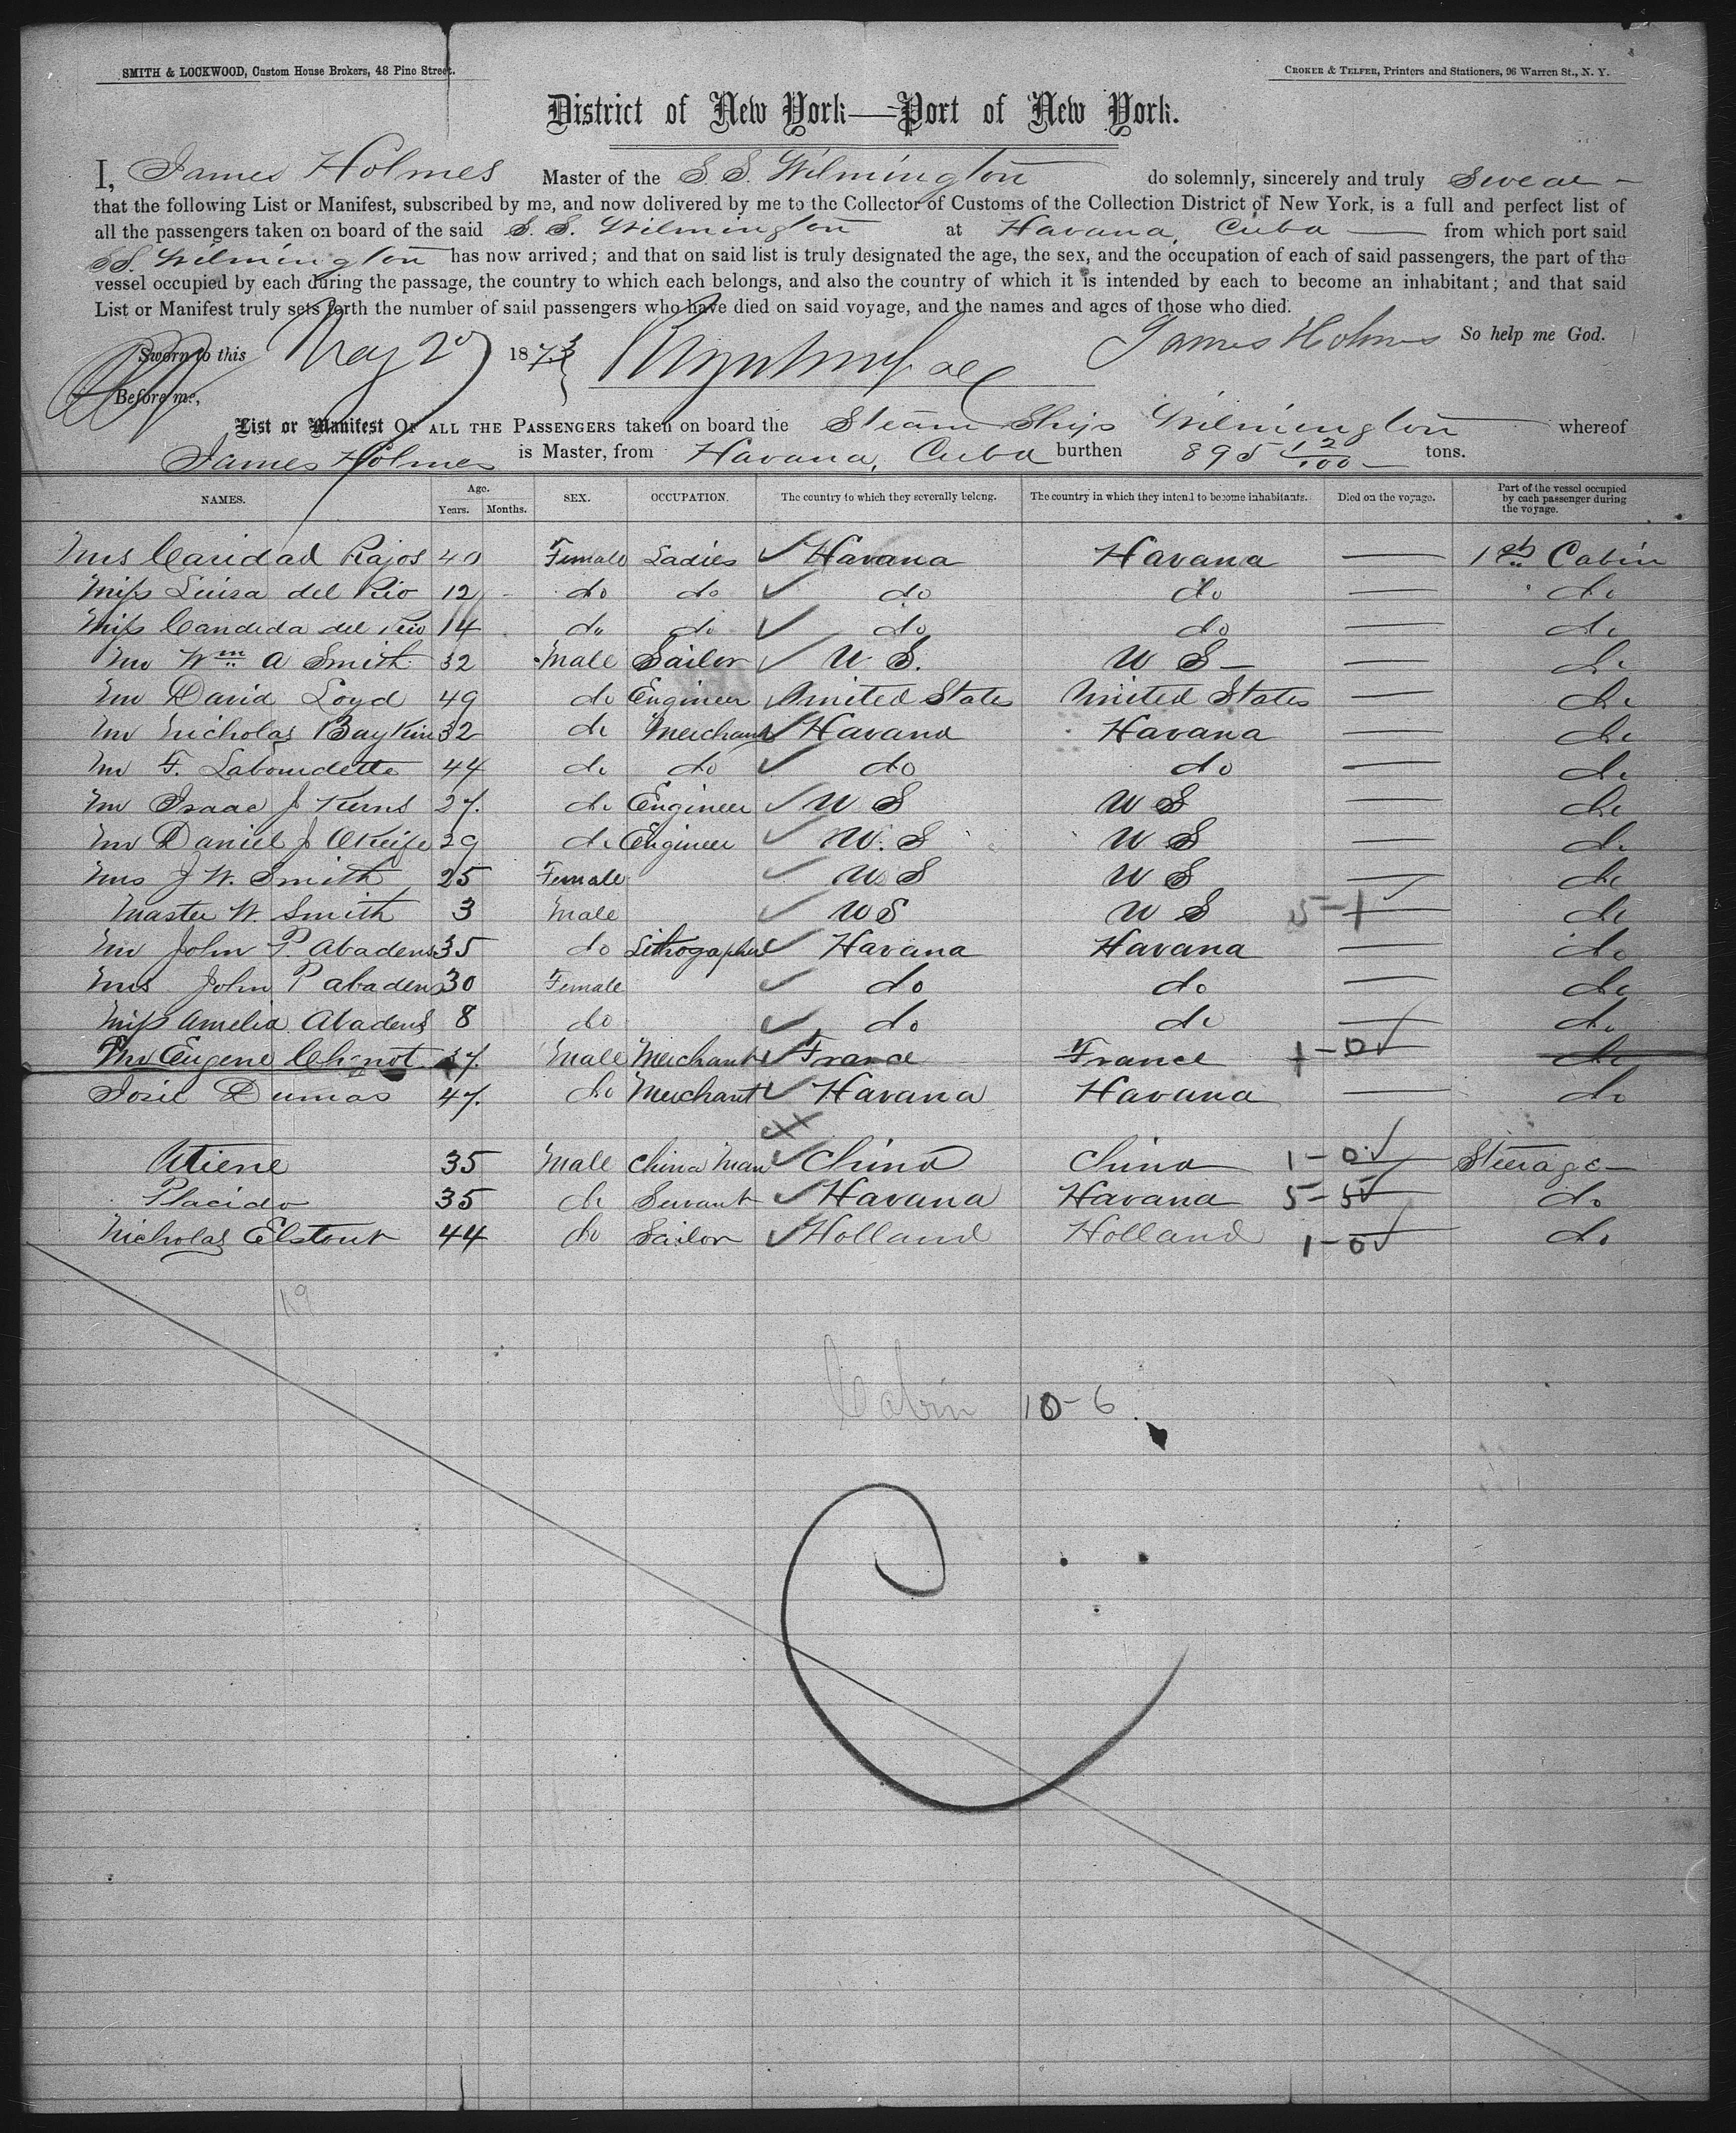 SMITH & LOCKWOOD, Custom House Brokers, 48 Pine Street.
CROKER & TELFER, Printers and Stationers, 96 Warren St., N. Y.
District of New York—Port of New York.
I, James Holmes Master of the S. S. Wilmington do solemnly, sincerely and truly Swear
that the following List or Manifest, subscribed by me, and now delivered by me to the Collector of Customs of the Collection District of New York, is a full and perfect list of
all the passengers taken on board of the said S. S. Wilmington at Havana, Cuba from which port said
SS. Wilmington has now arrived; and that on said list is truly designated the age, the sex, and the occupation of each of said passengers, the part of the
vessel occupied by each during the passage, the country to which each belongs, and also the country of which it is intended by each to become an inhabitant; and that said
List or Manifest truly sets forth the number of said passengers who have died on said voyage, and the names and ages of those who died.
Sworn to this May 27 1873 James Holmes So help me God.
Before me,
List or Manifest OF ALL THE PASSENGERS taken on board the Steam Ship Wilmington whereof
James Holmes is Master, from Havana, Cuba burthen 895 12/100 tons.
NAMES. Age. Years. Months. SEX. OCCUPATION. The country to which they severally belong. The country in which they intend to become inhabitants. Died on the voyage. Part of the vessel occupied by each passenger during the voyage.
Mrs Caridad Rajos 40 Female Ladies ✓ Havana Havana — 1st Cabin
Miss Luisa del Rio 12 do do ✓ do do — do
Miss Candida del Rio 14 do do ✓ do do — do
Mr Wm A Smith 32 Male Sailor ✓ U S. U S — do
Mr David Loyd 49 do Engineer ✓ United States United States — do
Mr Nicholas 32 do Merchant ✓ Havana Havana — do
Mr F. Labourdette 44 do do ✓ do do — do
Mr Isaac J Kerns 27. do Engineer ✓ U S U S — do
Mr Daniel J OKeife 29 do Engineer ✓ U. S U S — do
Mrs J W. Smith 25 Female ✓ U S U S — do
Master W. Smith 3 Male ✓ U S U S 5-1 — do
Mr John P. Abadens 35 do Lithographer ✓ Havana Havana — do
Mrs John P Abadens 30 Female ✓ do do — do
Miss Amelia Abadens 8 do ✓ do do — do
Mr Eugene 37. Male Merchant ✓ France France 1-0 ✓ do
Josie Dumas 47. do Merchant ✓ Havana Havana — do
35 Male China Man ✓ China China 1-0 ✓ Steerage
Placido 35 do Servant ✓ Havana Havana 5-5 ✓ do
Nicholas Elstout 44 do Sailor ✓ Holland Holland 1-0 ✓ do
19
Cabin 10-6